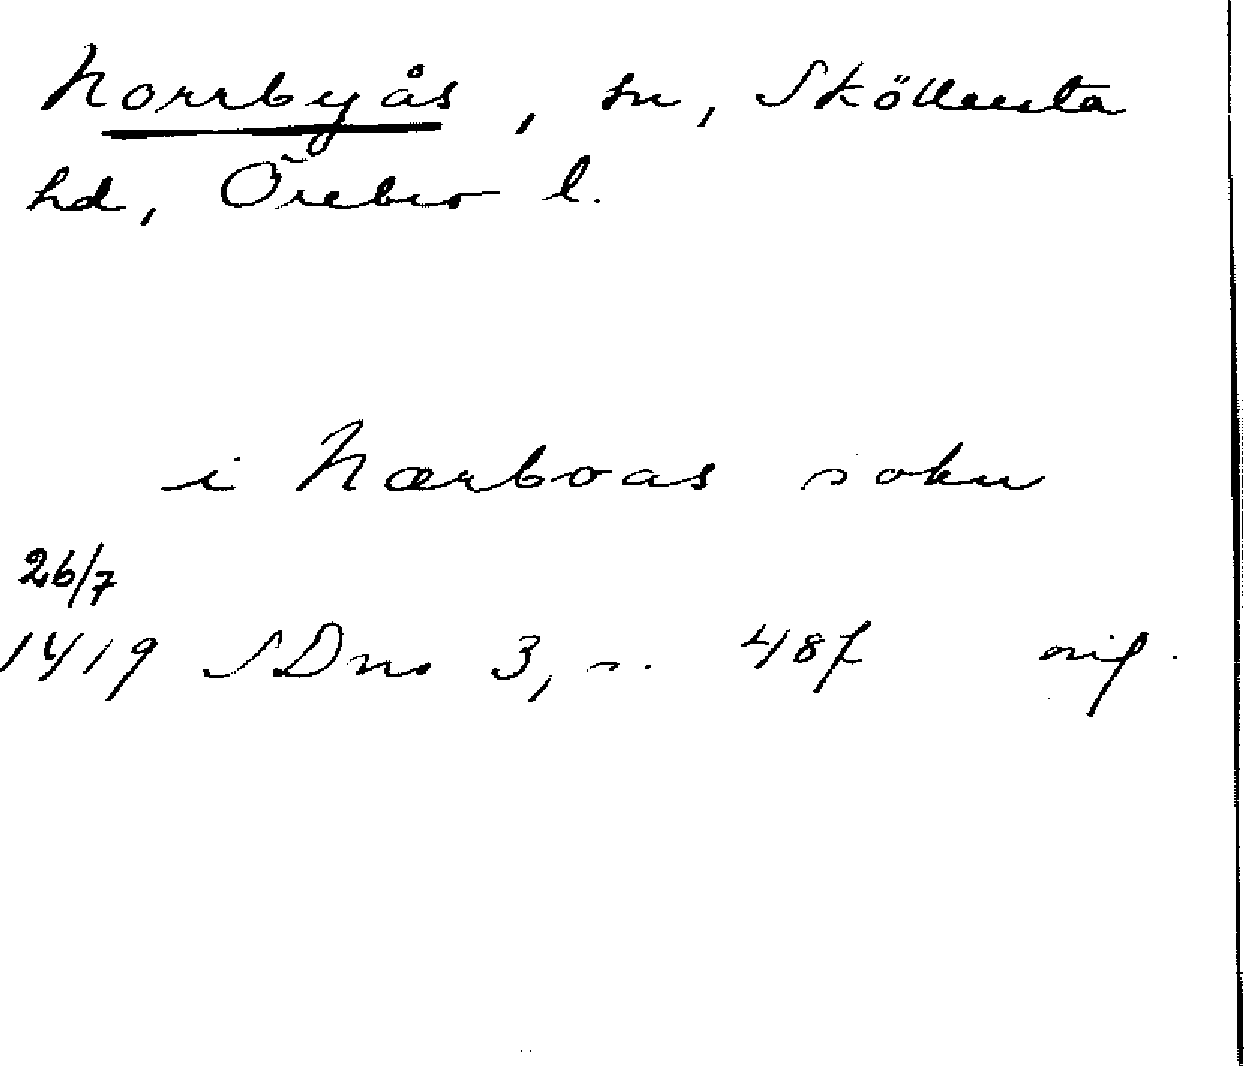 Norrbyås, sn, Sköllersta
hd, Örebro l.
i Nærboas sokn
26/7
1419 SDns 3, s. 48f orig.